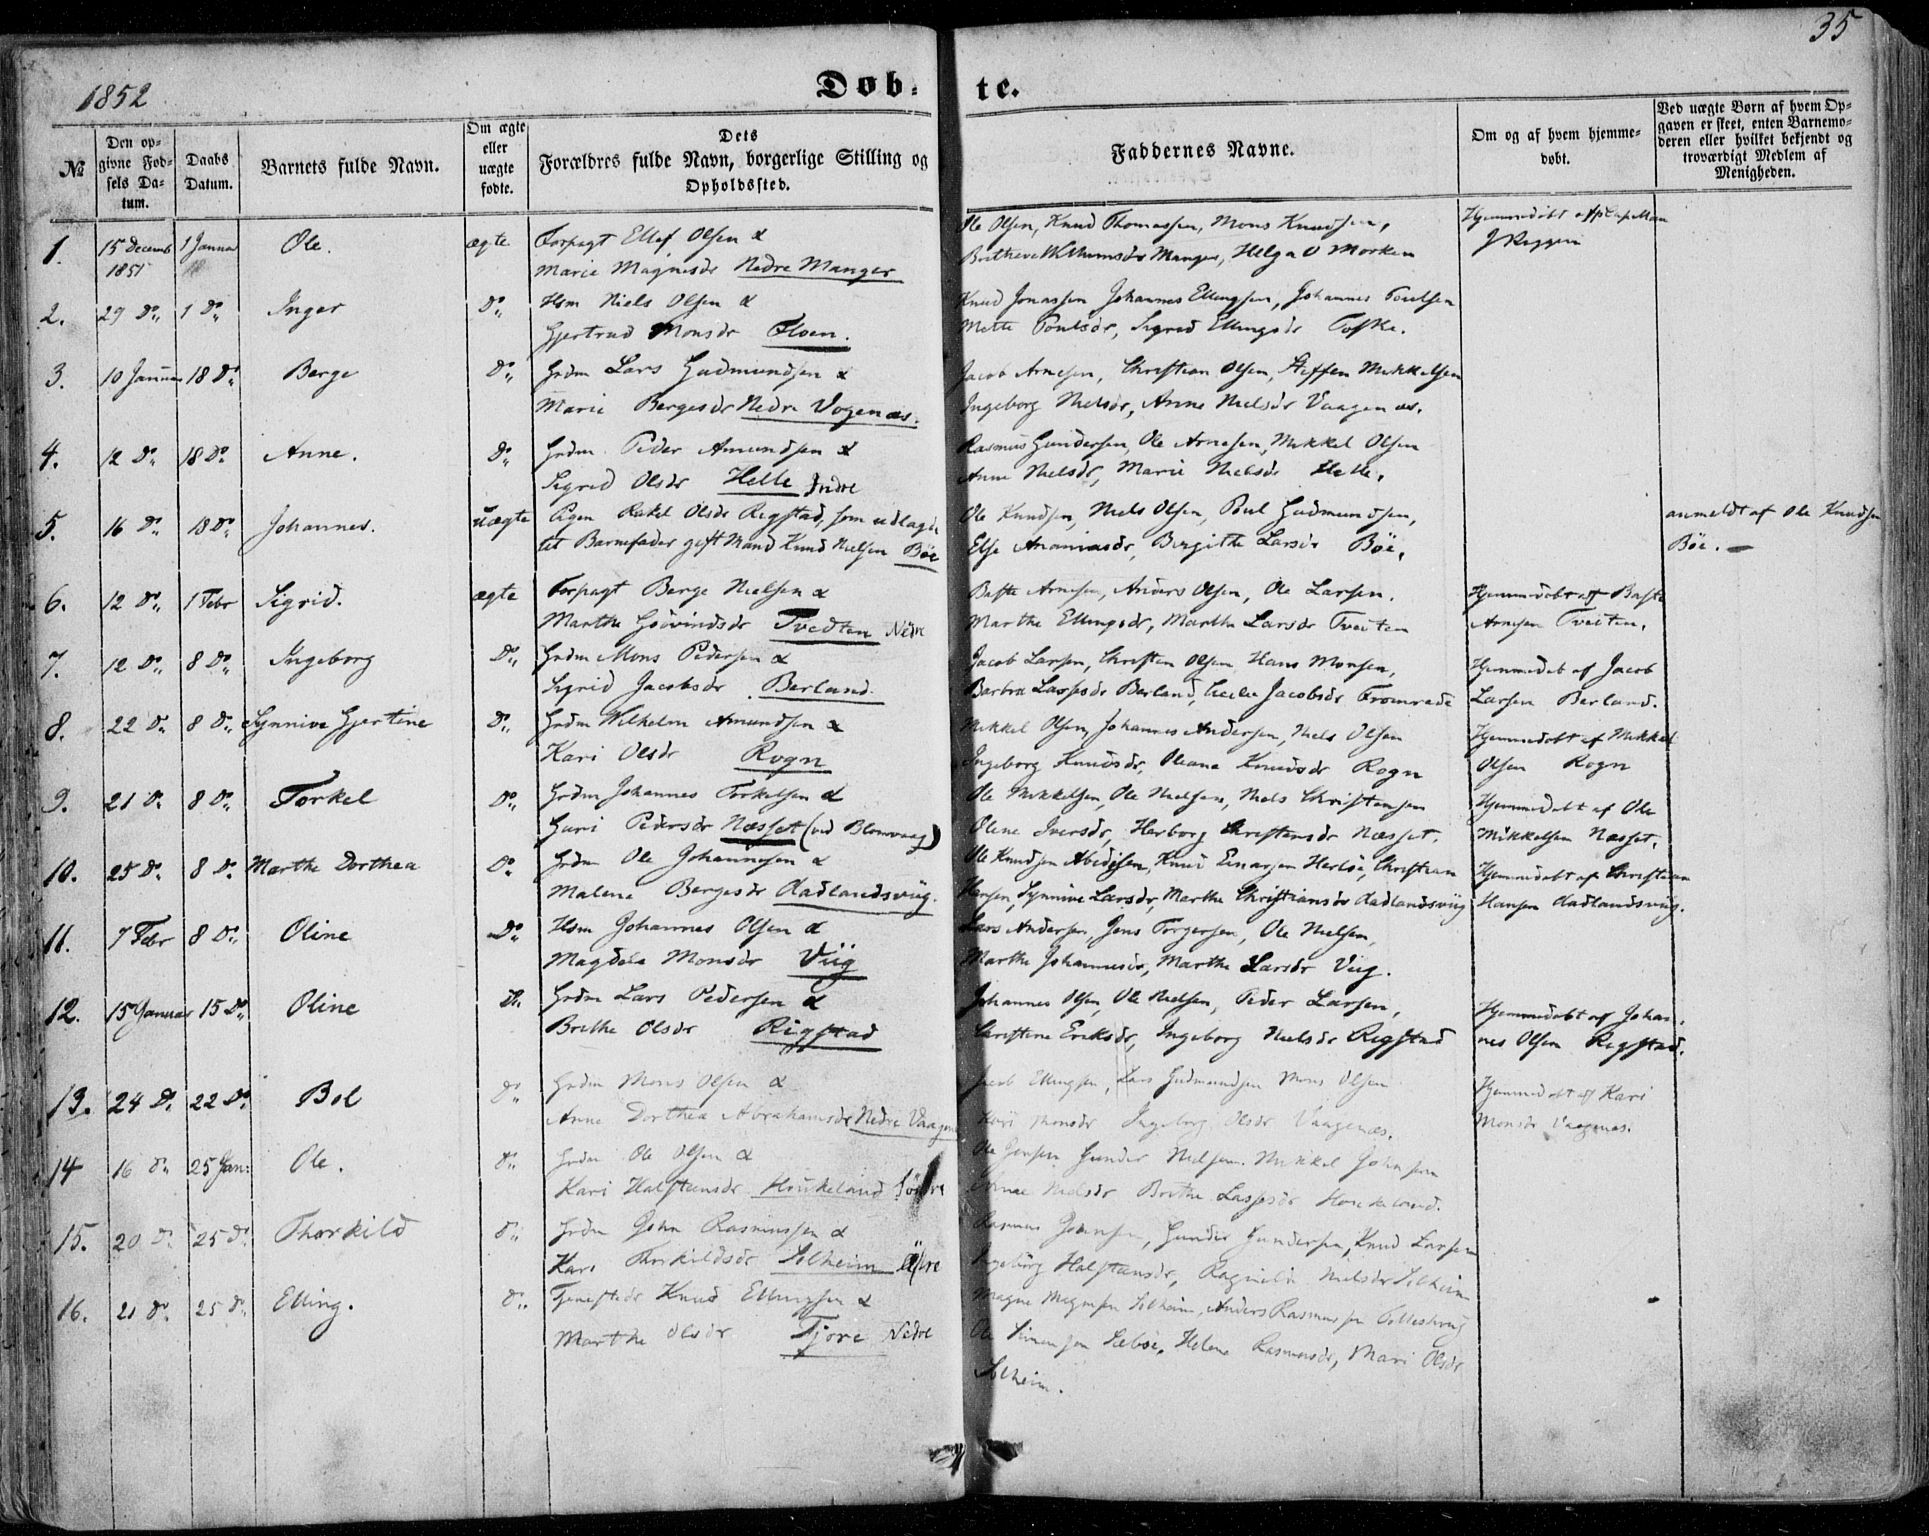 35
1852
Døb- te.
№
Den opgivne Fødsels Datum.
Daabs Datum.
Barnets fulde Navn.
Om ægte eller uægte fødte.
Dets Forældres fulde Navn, borgerlige Stilling og Opholdssted.
Faddernes Navne.
Om og af hvem hjemmedøbt.
Ved uægte Børn af hvem Opgaven er skeet, enten Barnemoderen eller hvilket bekjendt og troværdigt Medlem af Menigheden.
1. 15 Decemb 1851 1 Januar Ole. ægte Forpagt Ellef Olsen &
Marie Magnesdr Nedre Manger
Ole Olsen, Knud Thomassen, Mons Knudsen,
Manger, Helga O Morken
Hjemmedøbt af
2. 29 Do 1 Do Inger Do Hsm Niels Olsen &
Gjertrud Monsdr Floen.
Knud Jonassen Johannes Ellingsen, Johannes Poulsen
Mette Poulsdr, Sigrid Ellingsdr Toske.
3. 10 Januar 18 Do Berge Do Grdm Lars Gudmundsen &
Marie Bergesdr Nedre Vogenæs.
Jacob Arnesen, Christian Olsen, Steffen Mikkelsen
Ingeborg Nielsdr, Anne Nielsdr Vaagenæs.
4. 12 Do 18 Do Anne. Do Grdm Peder Amundsen &
Sigrid Olsdr Helle Indre
Rasmus Gundersen, Ole Arnesen, Mikkel Olsen
Anne Nielsdr, Marie Nielsdr Helle.
5. 16 Do 18 Do Johannes. uægte Pigen Rakel Olsdr Rigstad, som udlagde
tet Barnefader gift Mand Knud Nielsen Böe
Ole Knudsen, Niels Olsen, Poul Gudmundsen,
Else Ananiasdr, Bergithe Larsdr Böe.
anmeldt af Ole Knudsen
Böe. —
6. 12 Do 1 Febr Sigrid. ægte Forpagt Berge Nielsen &
Marthe Goövindsdr Tvedten Nedre
Baste Arnesen, Anders Olsen, Ole Larsen.
Marthe Ellingsdr, Marthe Larsdr Tveiten
Hjemmedøbt af Baste
Arnesen Tveiten.
7. 12 Do 8 Do Ingeborg Do Grdm Mons Pedersen &
Sigrid Jacobsdr Berland.
Jacob Larsen, Christen Olsen Hans Monsen,
Barbra Lassesdr Berland, Cecilie Jacobsdr Fromrede
Hjemmedøb af Jacob
Larsen Berland.
8. 22 Do 8 Do Synnive Gjertine Do Grdm Wilhelm Amundsen &
Kari Olsdr Rogn
Mikkel Olsen, Johannes Andersen, Niels Olsen
Ingeborg Knudsdr, Oleana Knudsdr Rogn
Hjemmedøbt af Mikkel
Olsen Rogn
9. 21 Do 8 Do Torkel Do Grdm Johannes Torkelsen &
Guri Pedersdr Næsset (ved Blomvaag)
Ole Mikkelsen, Ole Nielsen, Niels Christensen
Olene Iversdr, Herborg Christensdr Næsset.
Hjemmedøbt af Ole
Mikkelsen Næsset.
10. 25 Do 8 Do Marthe Dorthea Do Grdm Ole Johannesen &
Malene Bergesdr Aadlandsviig.
Ole Knudsen Knud Einarsen Herlöe, Christian
Hansen, Synnive Larsdr, Marthe Christiansdr Aadlandsviig
Hjemmedøbt af Christian
Hansen Aadlandsviig.
11. 7 Febr 8 Do Oline Do Hsm Johannes Olsen &
Magdela Monsdr Viig
Lars Andersen, Jens Torgersen, Ole Nielsen,
Marthe Johannesdr, Marthe Larsdr Viig.
12. 15 Januar 15 Do Oline Do Grdm Lars Pedersen &
Brithe Olsdr Rigstad
Johannes Olsen, Ole Nielsen, Peder Larsen,
Christine Eriksdr, Ingeborg Nielsdr Rigstad
Hjemmedøbt af Johan-
nes Olsen Rigstad.
13. 24 Do 22 Do Bol Do Grdm Mons Olsen &
Anne Dorthea Abrahamsdr Nedre Vaagenæs
Jacob Ellingsen, Lars Gudmundsen Mons Olsen
Kari Monsdr Ingeborg Olsdr Vaagenæs.
Hjemmedøbt af Kari
Monsdr Vaagenæs.
14 16 Do 25 Jan: Ole. Do Grdm Ole Olsen &
Kari Halstensdr Houkeland Söndre
Ole Jensen Gunder Nielsen. Mikkel Johnsen
Nielsdr Brithe Lassesdr Houkeland.
15. 20 Do 25 Do Thorkild Do Grdm John Rasmussen &
Kari Thorkildsdr Solheim Östre
Rasmus Johnsen, Gunder Gundersen, Knud Larsen
Ingebörg Halstensdr, Nielsdr Solheim
16. 21 Do 25 Do Elling. Do Tjenestedr Knud Ellingsen &
Marthe Olsdr Fjore Nedre
Magne Magnesen Solheim, Anders Rasmussen
Ole Simensen Sæböe, Helene Rasmusdr, Mari Olsdr
Solheim.